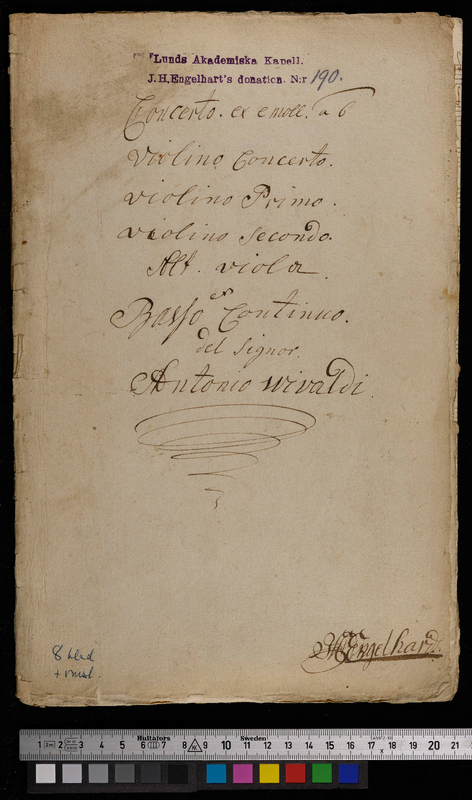 Lunds Akademiska Kapell.
J.H.Engelhart's donation. N:r 190.
Concerto. ex e moll. a 6
Violino Concerto.
violino Primo.
violino Secondo.
Alt. viola.
Basso ex Continuo.
del Signor.
Antonio wivaldi.
8 blad
+ omsl.
Engelhardt.
Hultafors Sweden
1 2 3 4 5 6 7 8 9 10 11 12 13 14 15 16 17 18 19 20 21